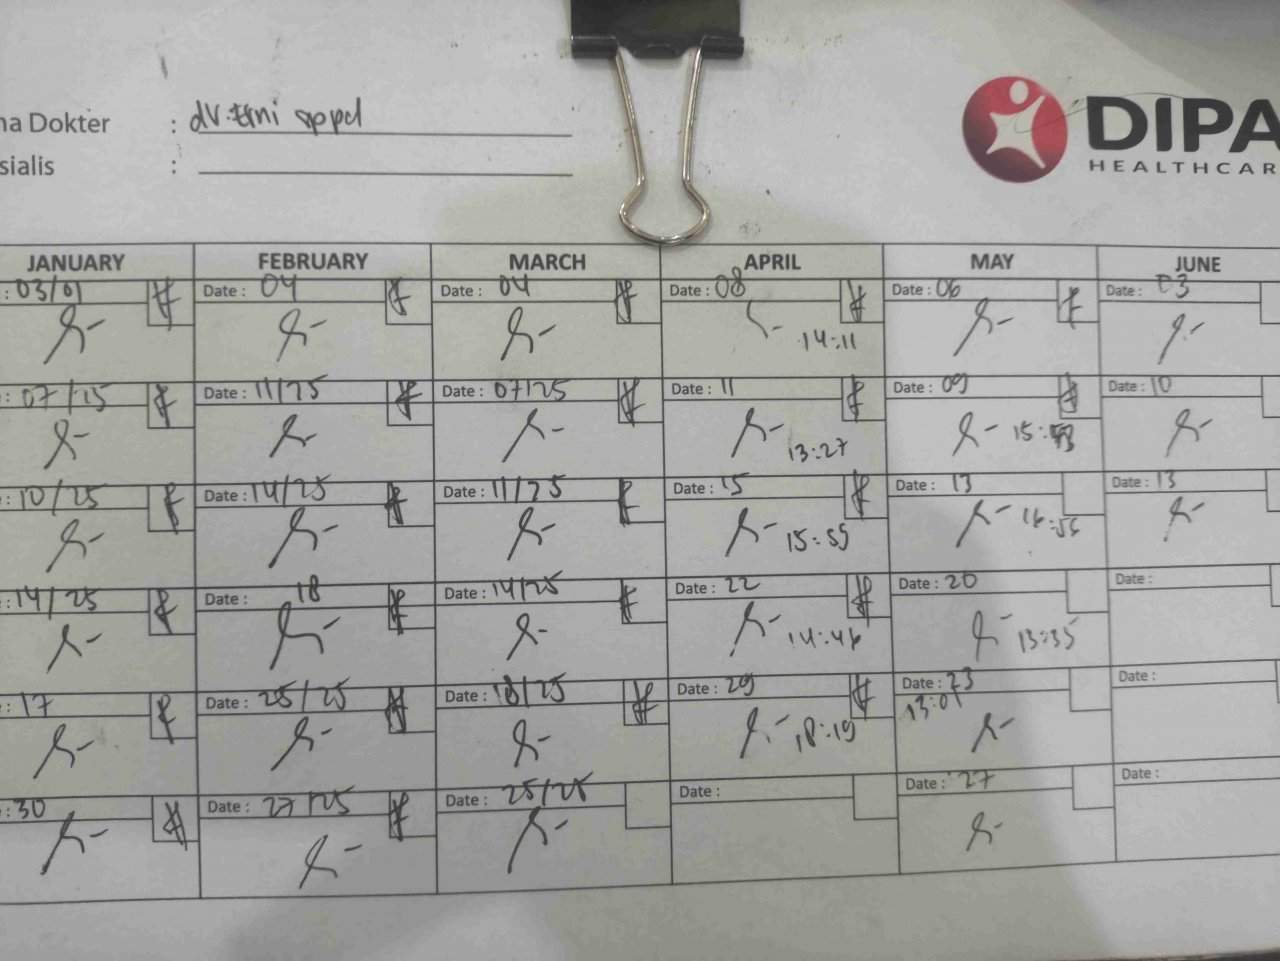 na Dokter : dr. Erni sppd
sialis :
DIPA
HEALTHCAR
JANUARY FEBRUARY MARCH APRIL MAY JUNE
: 03/01 Date : 04 Date : 04 Date : 08 Date : 06 Date : 03
14:11
: 07/25 Date : 11/25 Date : 07/25 Date : 11 Date : 09 Date : 10
13:27 15:
: 10/25 Date : 14/25 Date : 11/25 Date : 15 Date : 13 Date : 13
15:55 16:55
: 14/25 Date : 18 Date : 14/25 Date : 22 Date : 20 Date :
14:46 13:35
: 17 Date : 25/25 Date : 18/25 Date : 29 Date : 23 Date :
18:19 13:01
: 30 Date : 27/25 Date : 25/25 Date : Date : 27 Date :